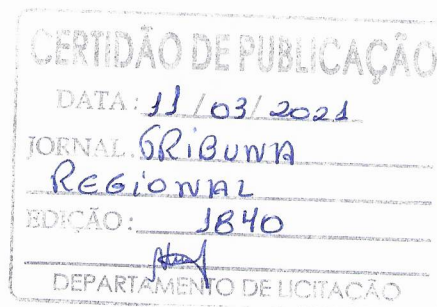 CERTIDÃO DE PUBLICAÇÃO
DATA: 11/03/2021
JORNAL TRIBUNA
REGIONAL
EDIÇÃO: 1840
DEPARTAMENTO DE LICITAÇÃO